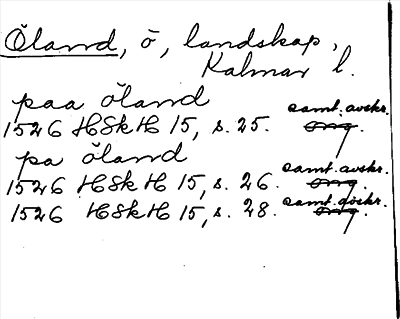 Öland, ö, landskap,
Kalmar l.
paa öland
1526 HSkH 15, s. 25. samt. avskr.
pa öland
1526 HSkH 15, s. 26. samt. avskr.
1526 HSkH 15, s. 28. samt. avskr.